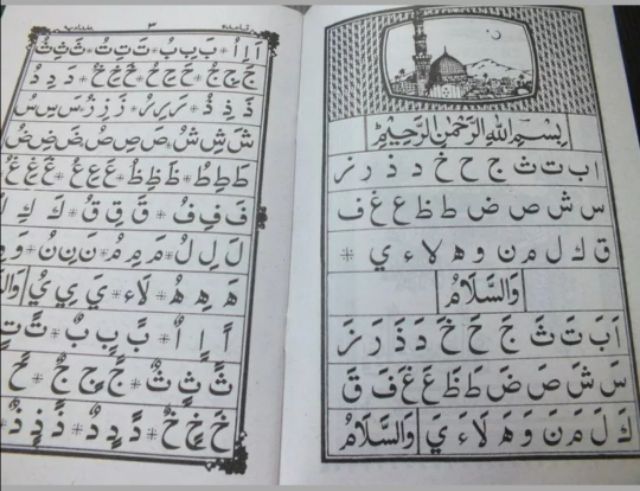 بِسْمِ اللهِ الرَّحْمٰنِ الرَّحِيْمِ
ا ب ت ث ج ح خ د ذ ر ز
س ش ص ض ط ظ ع غ ف
ق ك ل م ن و ه لا ء ي *
وَالسَّلَامُ
اَ بَ تَ ثَ جَ حَ خَ دَ ذَ رَ زَ
سَ شَ صَ ضَ طَ ظَ عَ غَ فَ قَ
كَ لَ مَ نَ وَ هَ لَا ءَ يَ وَالسَّلَامُ
٣
اَ اِ اُ * بَ بِ بُ * تَ تِ تُ * ثَ ثِ ثُ
جَ جِ جُ * حَ حِ حُ * خَ خِ خُ * دَ دِ دُ
ذَ ذِ ذُ * رَ رِ رُ * زَ زِ زُ * سَ سِ سُ
شَ شِ شُ * صَ صِ صُ * ضَ ضِ ضُ
طَ طِ طُ * ظَ ظِ ظُ * عَ عِ عُ * غَ غِ غُ
فَ فِ فُ * قَ قِ قُ * كَ كِ
لَ لِ لُ * مَ مِ مُ * نَ نِ نُ * وَ وِ
هَ هِ هُ * لَاء * يَ يِ يُ
اً اٍ اٌ * بً بٍ بٌ * تً تٍ
ثً ثٍ ثٌ * جً جٍ جٌ * حً
خً خٍ خٌ * دً دٍ دٌ * ذً ذٍ ذٌ